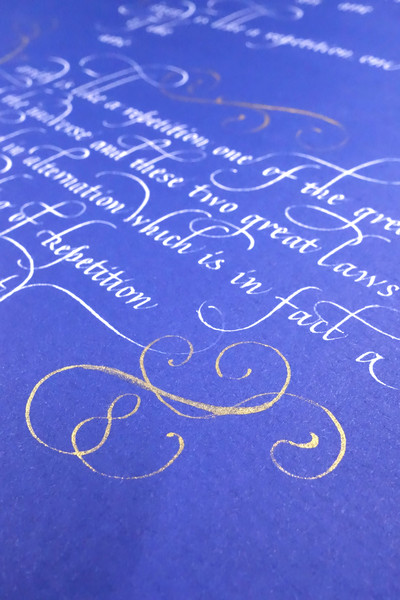 is like a repetition one
is like a repetition, one of the grea
the universe and these two great laws
in alternation which is in fact a
of Repetition